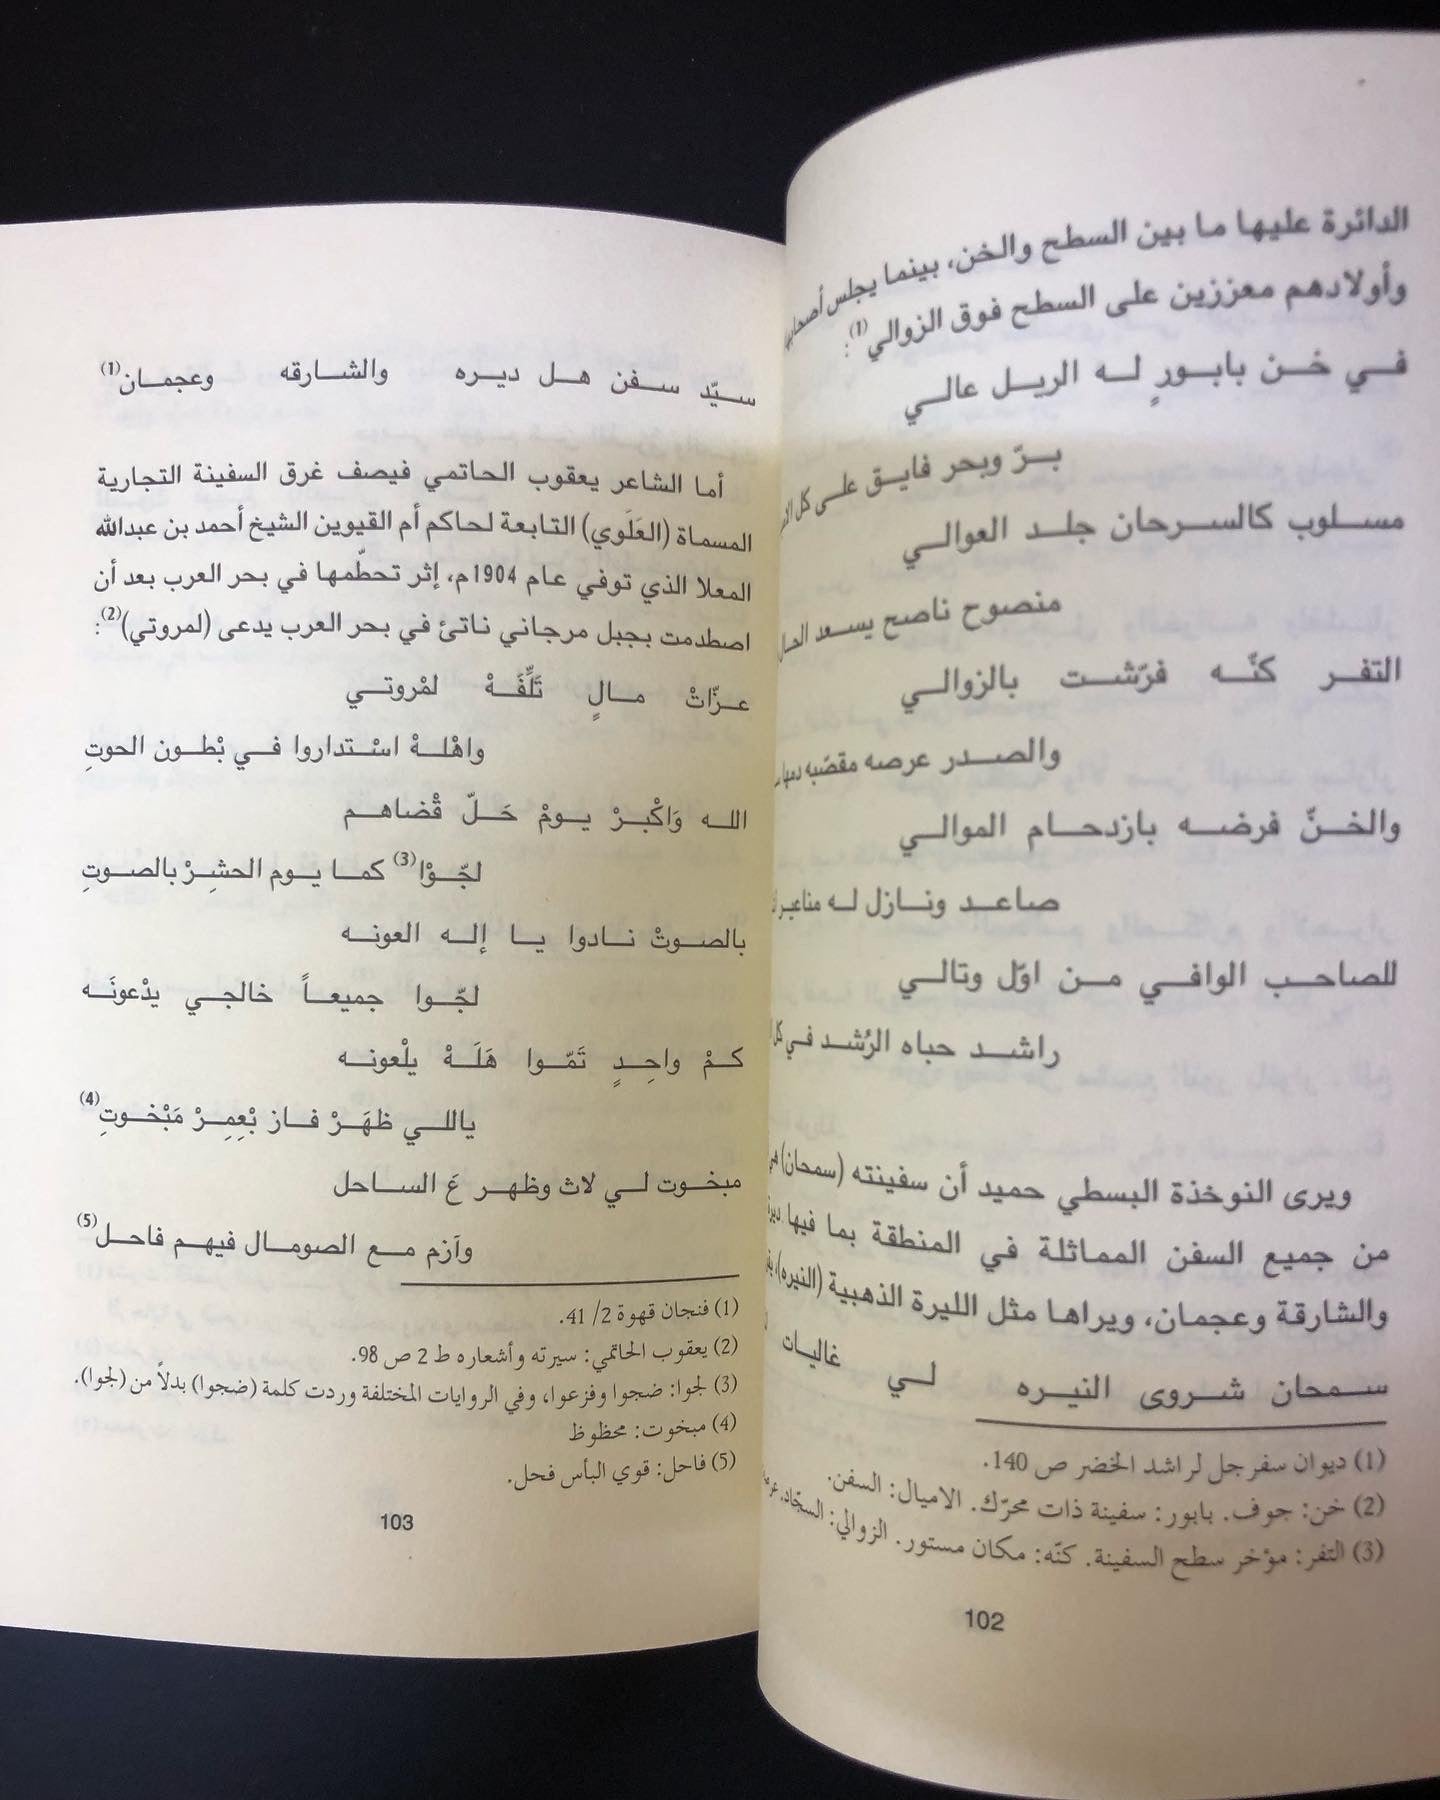 الدائرة عليها ما بين السطح والخن، بينما يجلس أصحابها
وأولادهم معززين على السطح فوق الزوالي(1):
في خـن بابـورٍ لـه الريـل عالـي
بـرّ وبحر فايـق على كل
مسـلوب كالسـرحان جلـد العوالـي
منصوح ناصح يسعد
التفـر كنّـه فرّشـت بالزوالـي
والصـدر عرصه مقصّبه
والخـنّ فرضـه بازدحـام الموالـي
صاعـد ونـازل لـه مناعير
للصاحـب الوافـي مـن اوّل وتالـي
راشـد حباه الرُشـد في كل
ويرى النوخذة البسطي حميد أن سفينته (سمحان) هي
من جميع السفن المماثلة في المنطقة بما فيها ديرة
والشارقة وعجمان، ويراها مثل الليرة الذهبية (النيره)،
سـمحان شـروى النيـره لـي غاليـات
(1) ديوان سفرجل لراشد الخضر ص 140.
(2) خن: جوف. بابور: سفينة ذات محرّك. الاميال: السفن.
(3) التفر: مؤخر سطح السفينة. كنّه: مكان مستور. الزوالي: السجّاد.
102
سـيّد سـفن هـل ديـره والشـارقه وعجمـان(1)
أما الشاعر يعقوب الحاتمي فيصف غرق السفينة التجارية
المسماة (العَلَوي) التابعة لحاكم أم القيوين الشيخ أحمد بن عبدالله
المعلا الذي توفي عام 1904م، إثر تحطّمها في بحر العرب بعد أن
اصطدمت بجبل مرجاني ناتئ في بحر العرب يدعى (لمروتي)(2):
عـزّاتْ مـالٍ تَلِّفَـهْ لمْروتـي
واهْلـهْ اسْـتداروا فـي بْطـون الحوتِ
اللـه وَاكْبـرْ يـومْ حَـلّ قْضاهـم
لجّـوْا(3) كمـا يـوم الحشِـرْ بالصـوتِ
بالصـوتْ نـادوا يـا إلـه العونـه
لجّـوا جميعـاً خالجـي يدْعونَـه
كـمْ واحِـدٍ تَمّـوا هَلَـهْ يلْعونـه
ياللـي ظهَـرْ فـاز بْعِمِـرْ مَبْخـوتِ(4)
مبخـوت لـي لاث وظهـر عَ السـاحل
وآزم مـع الصومـال فيهـم فاحـل(5)
(1) فنجان قهوة 2/ 41.
(2) يعقوب الحاتمي: سيرته وأشعاره ط 2 ص 98.
(3) لجوا: ضجوا وفزعوا، وفي الروايات المختلفة وردت كلمة (ضجوا) بدلاً من (لجوا).
(4) مبخوت: محظوظ
(5) فاحل: قوي البأس فحل.
103